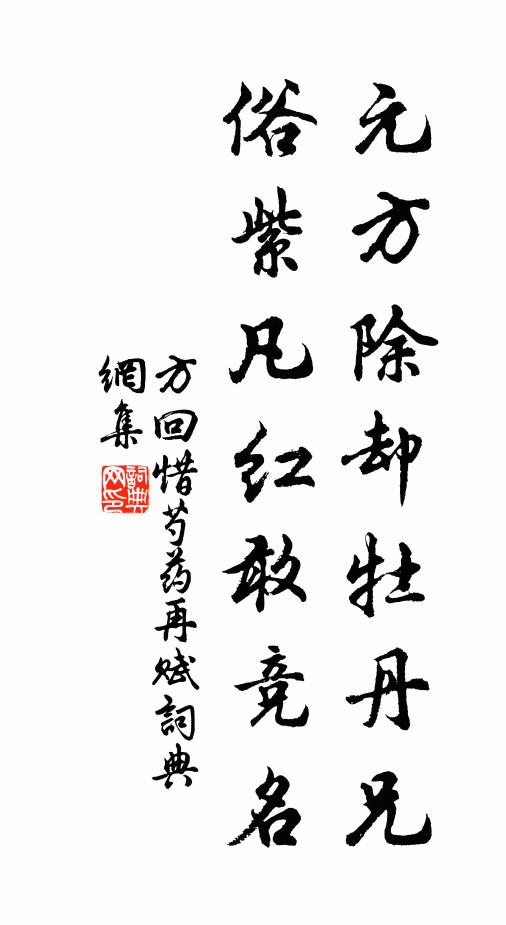 元方除却牡丹兄
俗紫凡红敢竞名
方回惜芍药再赋詞典
網集
詞典网印